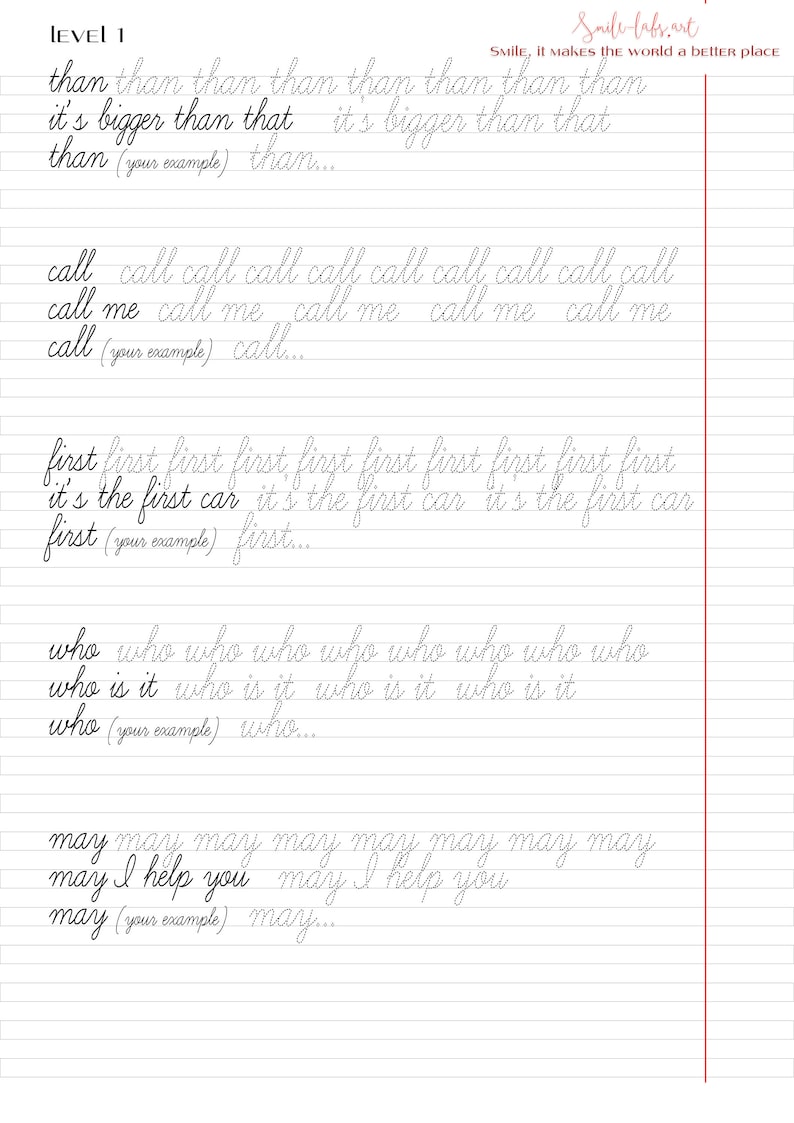 Level 1
Smile-labs.art
Smile, it makes the world a better place
than than than than than than than than
it's bigger than that it's bigger than that
than (your example) than...
call call call call call call call call call call
call me call me call me call me call me
call (your example) call...
first first first first first first first first first first
it's the first car it's the first car it's the first car
first (your example) first...
who who who who who who who who who
who is it who is it who is it who is it
who (your example) who...
may may may may may may may may
may I help you may I help you
may (your example) may...